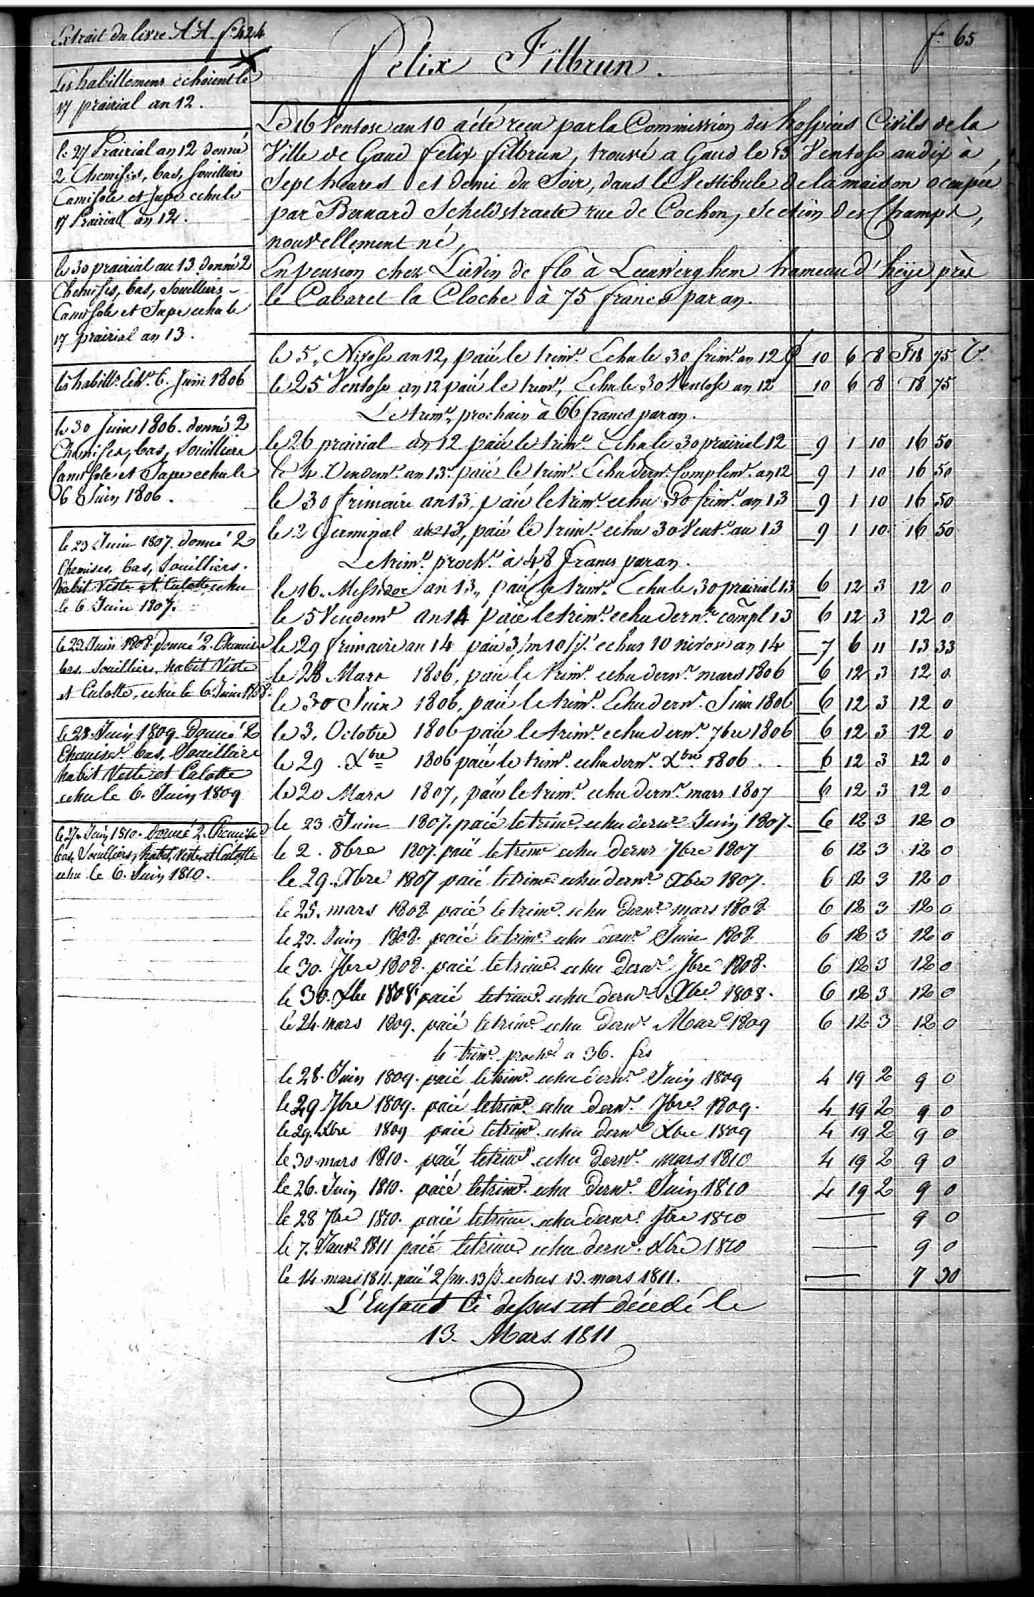 Extrait du livre AA. f. 424
f. 65
Felix Filbrun.
Les habillemens echoient le
17 prairial an 12.
le 27 Prairial an 12 donné
2 Chemises, bas, souillier
Camisole et Jupe echu le
17 Prairial an 12.
le 30 prairial an 13 donné 2
Chemises, bas, Souilliers
Camisole et Jupe echu le
17 prairial an 13.
les habill. Ech. 6. Juin 1806
le 30 Juin 1806. donné 2
Chemises, bas, Souilliers
Camisole et Jupe echu le
6 Juin 1806.
le 23 Juin 1807. donné 2
Chemises, bas, Souilliers.
habit Veste et Culotte, echu
le 6 Juin 1807.
le 23 Juin 1808. donné 2. Chemises
bas, Souilliers, habit Veste
et Culotte, echu le 6 Juin 1808.
le 28. Juin 1809. Donné 2
Chemises. bas, Souilliers
habit Veste et Culotte
echu le 6. Juin 1809
le 27. Juin 1810. Donné 2. Chemises
bas, Souilliers, habit, Veste, et Culotte
echu le 6. Juin 1810.
Le 16 Ventose an 10 a été reçu par la Commission des hospices Civils de la
Ville de Gand Felix filbrun, trouvé a Gand le 13 Ventose an dix à
Sept heures et demie du Soir, dans le Vestibule de la maison occupée
par Bernard Scheldstraete rue de Cochon, Section des Champs,
nouvellement né,
En pension chez Lievin de flo à Leeuwerghem hameau d'heije près
le Cabaret la Cloche à 75 francs par an.
le 5, Nivose an 12, paié le trim.e Echu le 30 frim. an 12 10 6 8 F 18 75 C.
le 25 Ventose an 12 paié le trim.e, Echu le 30 Ventose an 12 10 6 8 18 75
Le trim.e prochain à 66 francs par an.
le 26 prairial an 12 paié le trim.e Echu le 30 prairial 12 9 1 10 16 50
le 4 Vendem.e an 13 paié le trim.e Echu dern. complem. an 12 9 1 10 16 50
le 30 frimaire an 13, paié le trim.e echu 30 frim. an 13 9 1 10 16 50
le 2 Germinal an 13, paié le trim.e echu 30 Vent.e an 13 9 1 10 16 50
Le trim.e proch.n à 48 francs par an.
le 16. Messidor an 13, paié le trim.e Echu le 30 prairial 13 6 12 3 12 0
le 5 Vendem.e an 14 paié le trim.e echu dern.r compl 13 6 12 3 12 0
le 29 frimaire an 14 paié 3/m 10/j.s echus 10 nivose an 14 7 6 11 13 33
le 28 Mars 1806, paié le trim.e echu dern.r mars 1806 6 12 3 12 0
le 30 Juin 1806, paié le trim.e Echu dern.r Juin 1806 6 12 3 12 0
le 3. Octobre 1806 paié le trim.e echu dern.r 7bre 1806 6 12 3 12 0
le 29 .Xbre 1806 paié le trim.e echu dern.r Xbre 1806. 6 12 3 12 0
le 20 Mars 1807, paié le trim.e echu dern.r mars 1807 6 12 3 12 0
le 23 Juin 1807. paié le trim.e echu dern.r Juin 1807. 6 12 3 12 0
le 2. 8bre 1807. paié le trim.e echu dern.r 7bre 1807 6 12 3 12 0
le 29. Xbre 1807 paié le trim.e echu dern.r Xbre 1807. 6 12 3 12 0
le 25. mars 1808 paié le trim.e echu dern.r mars 1808 6 12 3 12 0
le 23. Juin 1808. paié le trim.e echu dern.r Juin 1808 6 12 3 12 0
le 30. 7bre 1808. paié le trim.e echu dern.r 7bre 1808. 6 12 3 12 0
le 30. Xbre 1808 paié le trim.e echu dern.r Xbre 1808. 6 12 3 12 0
le 24 mars 1809. paié le trim.e echu dern.r Mars 1809 6 12 3 12 0
le trim.e proch.n a 36. frs
le 28. Juin 1809. paié le trim.e echu dern.r Juin 1809 4 19 2 9 0
le 29 7bre 1809. paié le trim.e echu dern.r 7bre 1809. 4 19 2 9 0
le 29. Xbre 1809 paié le trim.e echu dern.r Xbre 1809 4 19 2 9 0
le 30 mars 1810. paié le trim.e echu dern.r mars 1810 4 19 2 9 0
le 26. Juin 1810. paié le trim.e echu dern.r Juin 1810 4 19 2 9 0
le 28 7bre 1810. paié le trim.e echu dern.r 7bre 1810 — 9 0
le 7. Janv.r 1811 paié le trim.e echu dern.r Xbre 1810 — 9 0
le 14. mars 1811. paié 2/m. 13/j. echus 13. mars 1811. — 7 30
L'Enfant Ci dessus est décedé le
13. Mars. 1811